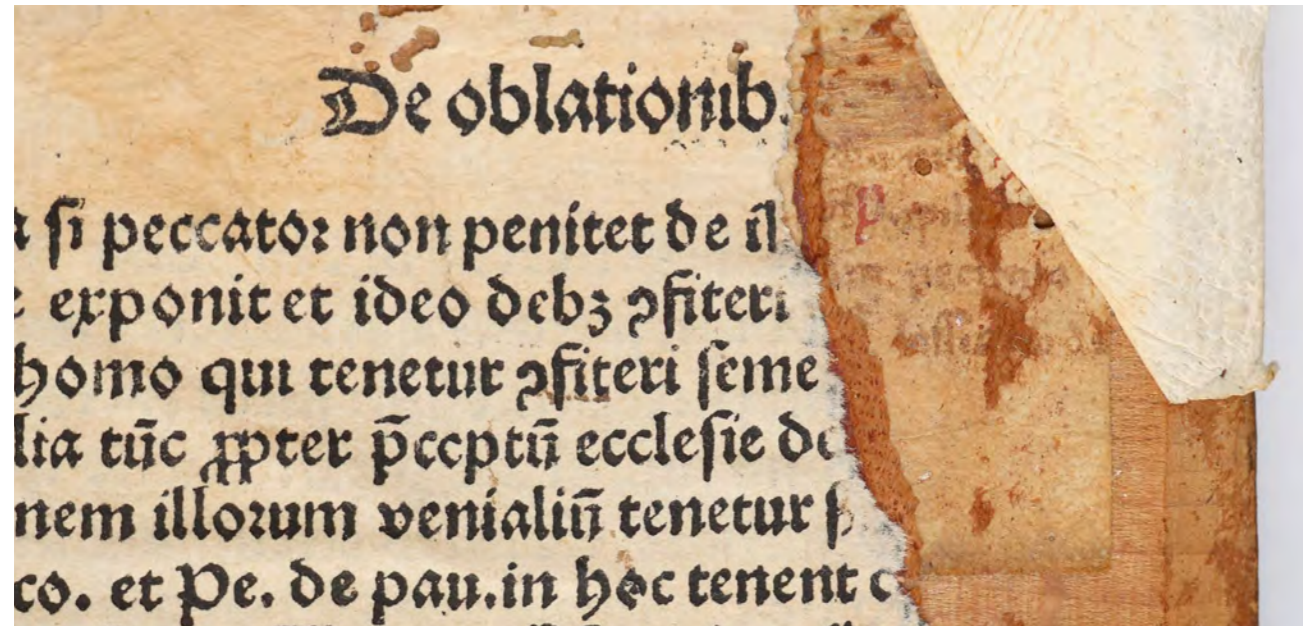 De oblationib.
a si peccator non penitet de il
e exponit et ideo debꝫ ꝯfiteri
homo qui tenetur ꝯfiteri seme
lia tūc ꝓpter p̄ceptū ecclesie de
nem illorum venialiū tenetur
co. et Pe. de pau. in hoc tenent c